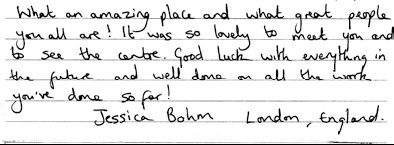 What an amazing place and what great people
you all are! It was so lovely to meet you and
to see the centre. Good Luck with everything in
the future and well done on all the work
you've done so far!
Jessica Bohm London, England.